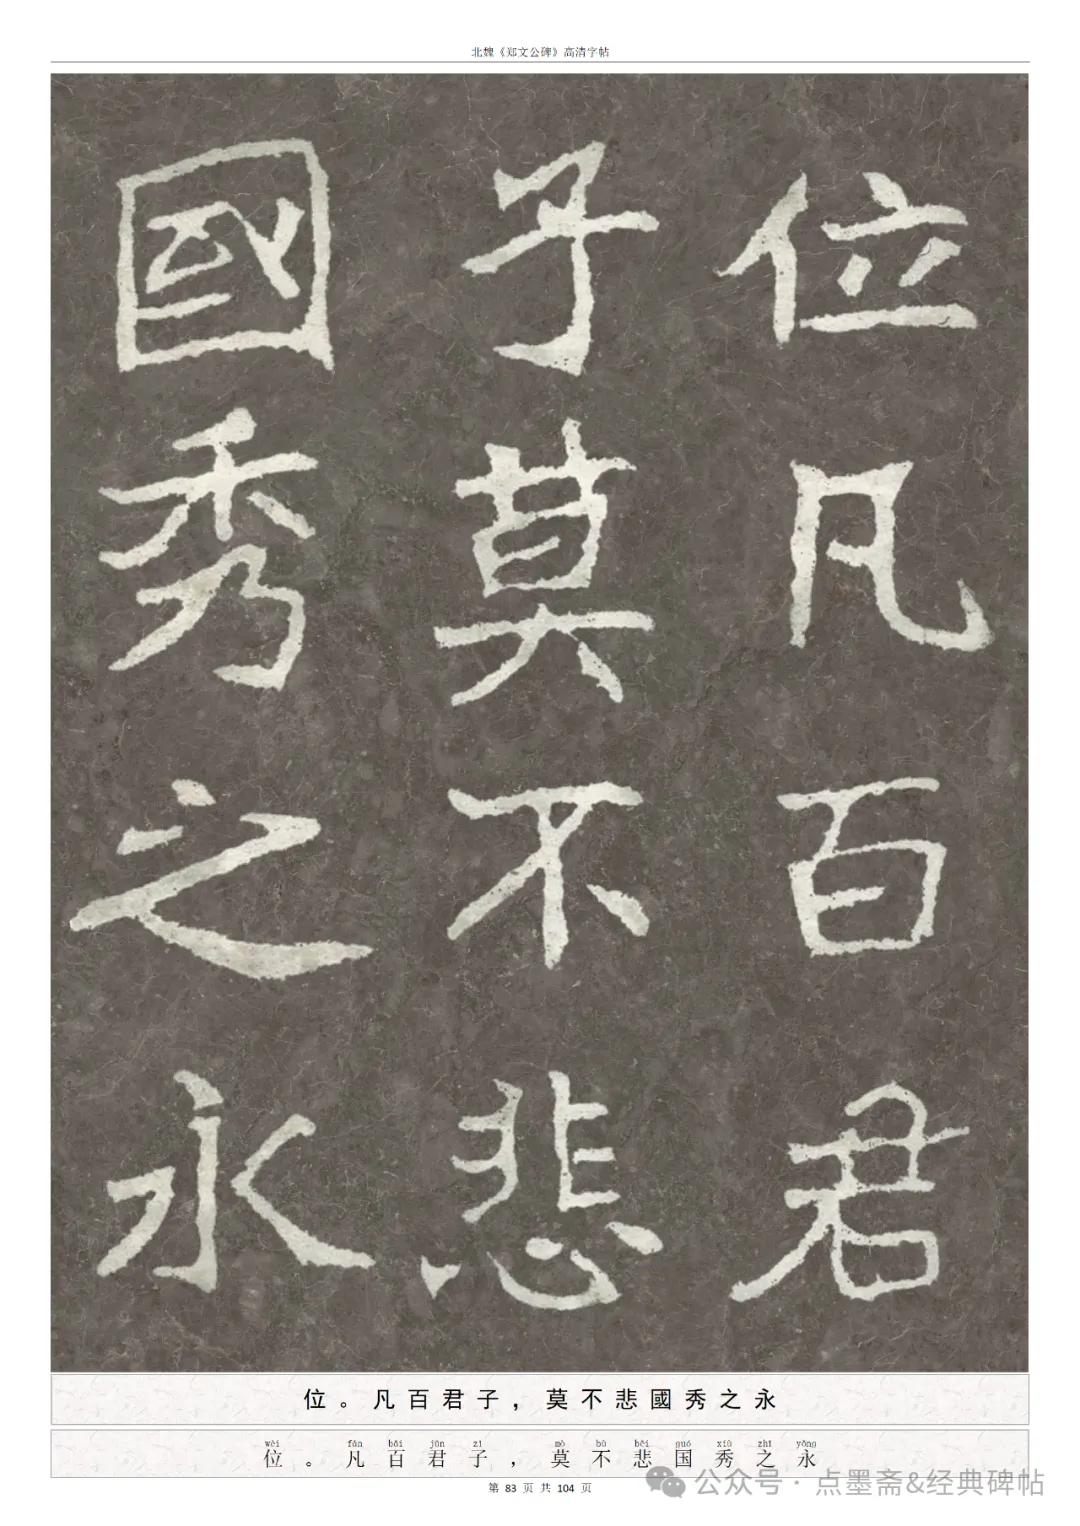 北魏《郑文公碑》高清字帖
位凡百君
子莫不悲
國秀之永
位。凡百君子，莫不悲國秀之永
wèi fán bǎi jūn zǐ mò bù bēi guó xiù zhī yǒng
位。凡百君子，莫不悲国秀之永
第 83 页 共 104 页
公众号 · 点墨斋&经典碑帖